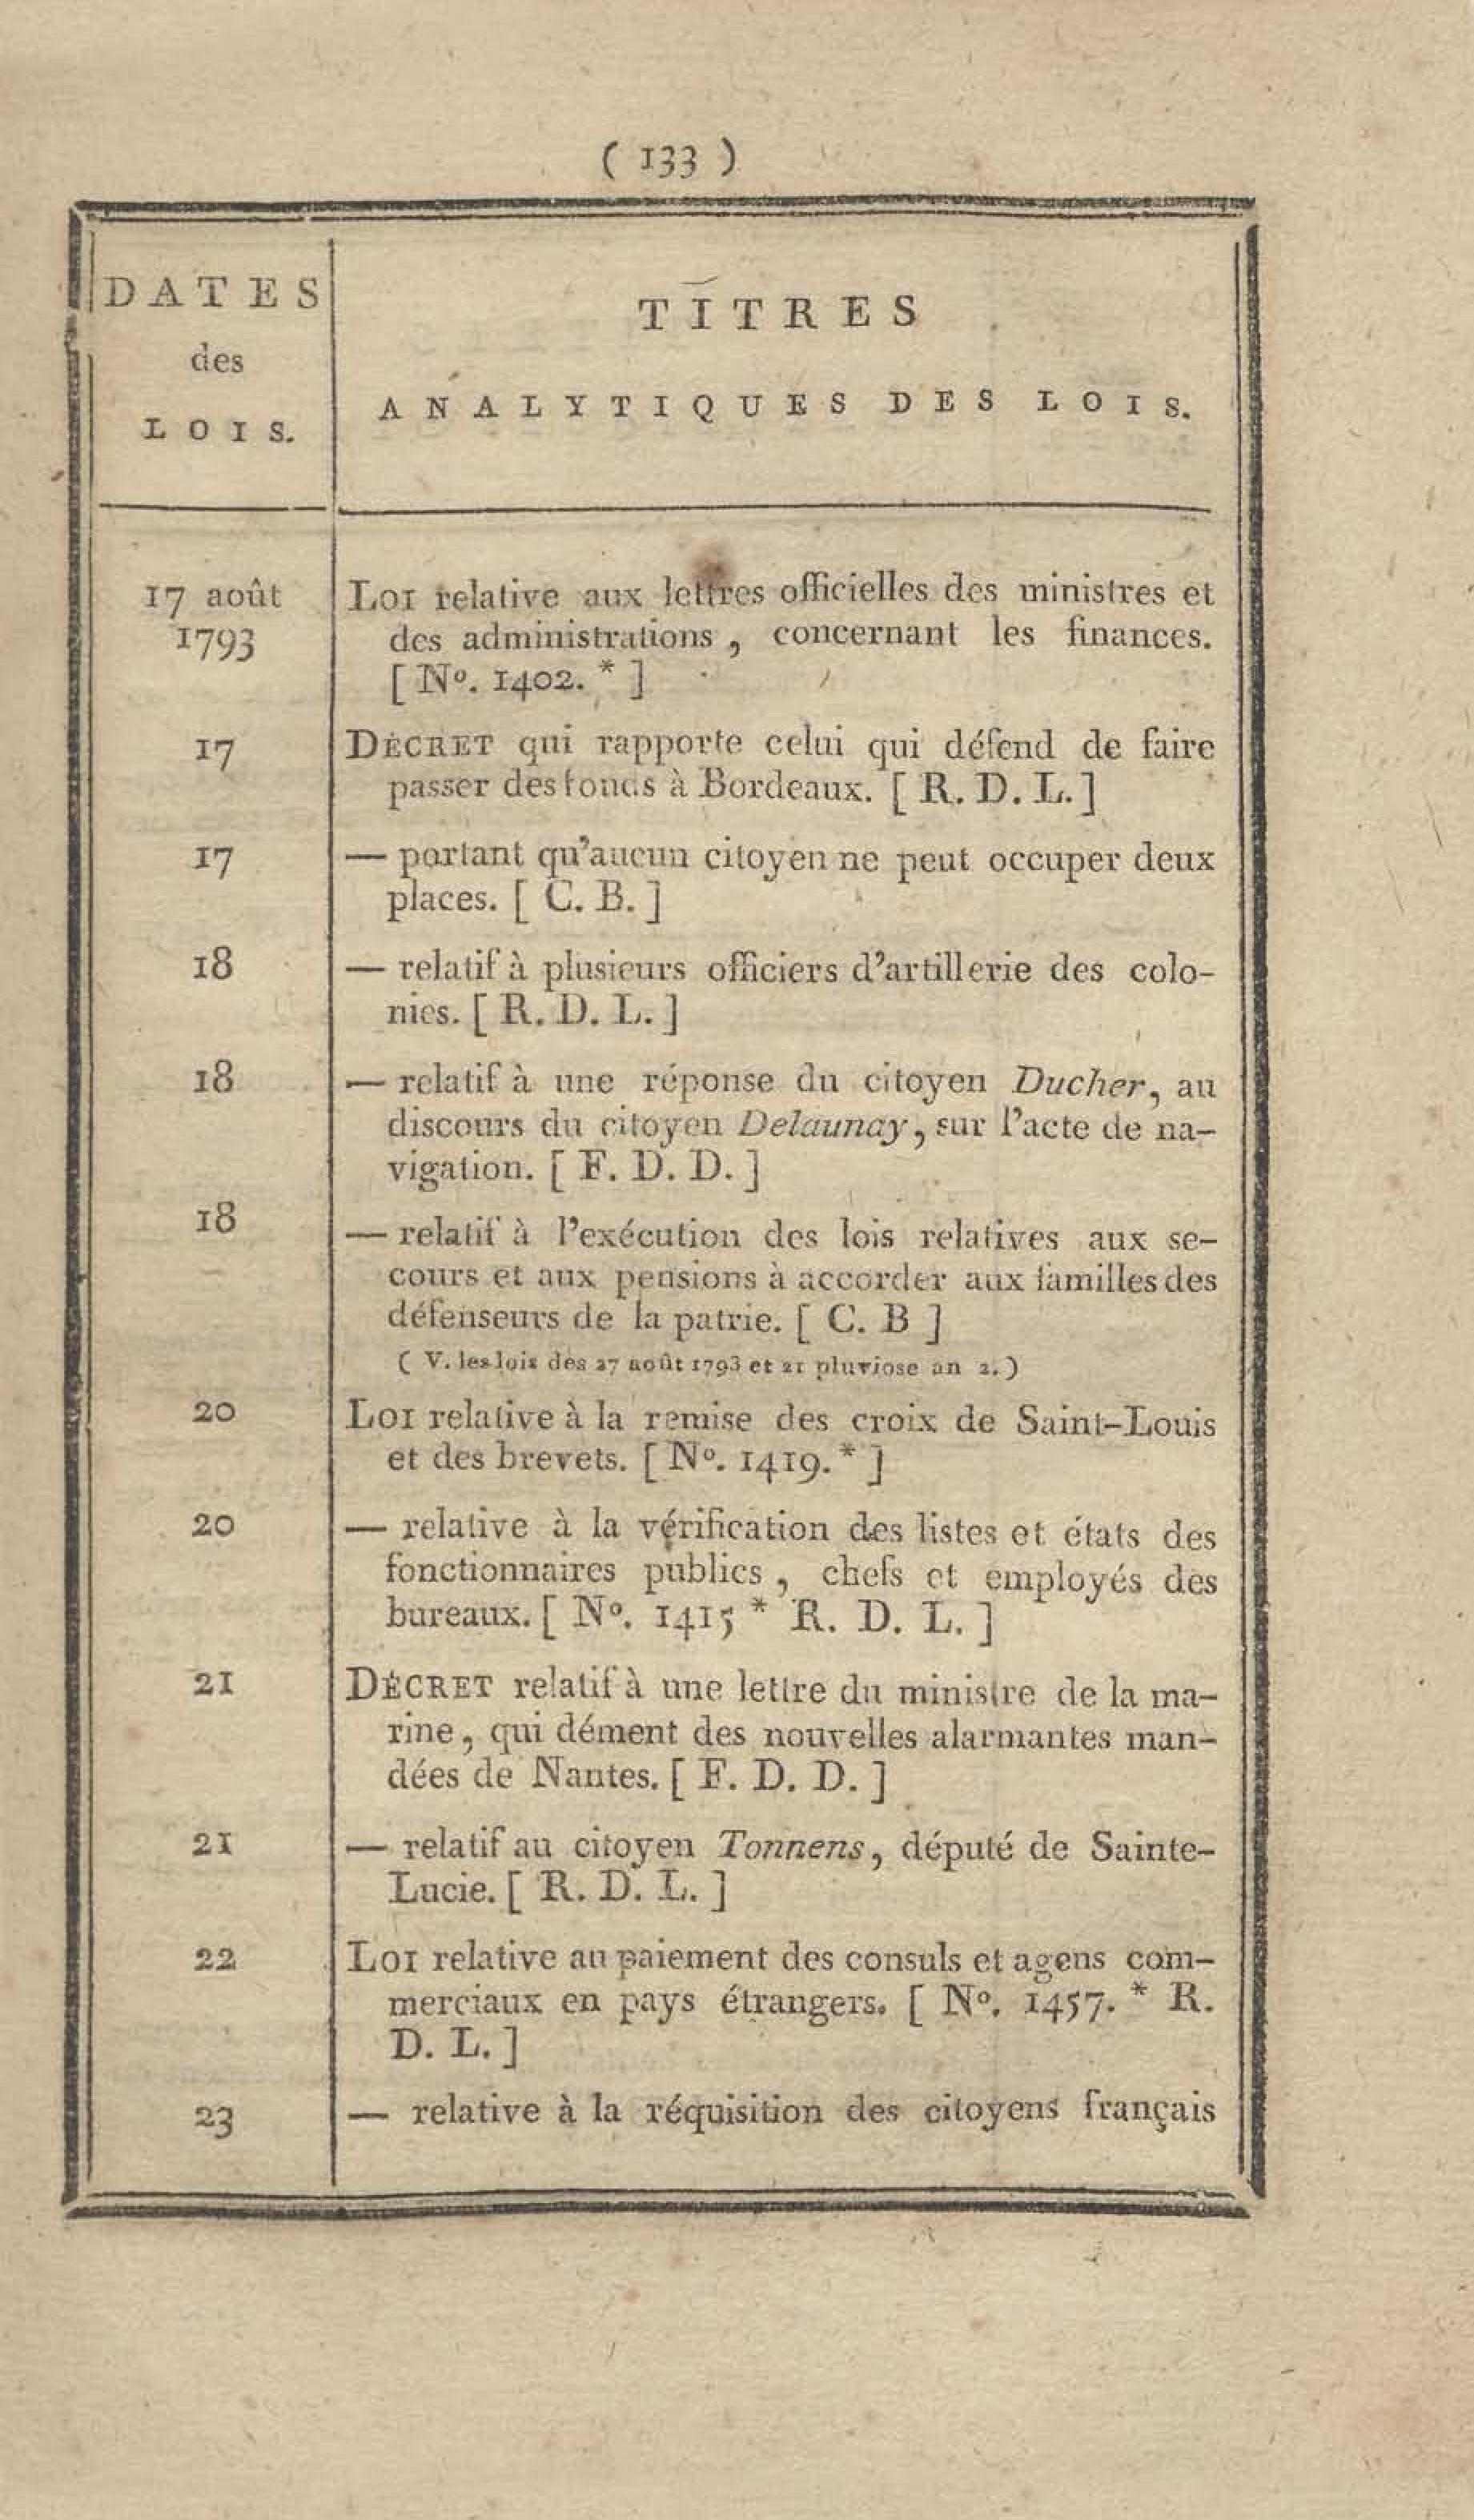 ( 133 )
DATES
des
LOIS.
TITRES
ANALYTIQUES DES LOIS.
17 août
1793
LOI relative aux lettres officielles des ministres et
des administrations, concernant les finances.
[ Nº. 1402. * ]
17
DÉCRET qui rapporte celui qui défend de faire
passer des fonds à Bordeaux. [ R. D. L. ]
17
— portant qu'aucun citoyen ne peut occuper deux
places. [ C. B. ]
18
— relatif à plusieurs officiers d'artillerie des colo-
nies. [ R. D. L. ]
18
— relatif à une réponse du citoyen Ducher, au
discours du citoyen Delaunay, sur l'acte de na-
vigation. [ F. D. D. ]
18
— relatif à l'exécution des lois relatives aux se-
cours et aux pensions à accorder aux familles des
défenseurs de la patrie. [ C. B ]
( V. les lois des 27 août 1793 et 21 pluviose an 2. )
20
LOI relative à la remise des croix de Saint-Louis
et des brevets. [ Nº. 1419. * ]
20
— relative à la vérification des listes et états des
fonctionnaires publics, chefs et employés des
bureaux. [ Nº. 1415 * R. D. L. ]
21
DÉCRET relatif à une lettre du ministre de la ma-
rine, qui dément des nouvelles alarmantes man-
dées de Nantes. [ F. D. D. ]
21
— relatif au citoyen Tonnens, député de Sainte-
Lucie. [ R. D. L. ]
22
LOI relative au paiement des consuls et agens com-
merciaux en pays étrangers. [ Nº. 1457. * R.
D. L. ]
23
— relative à la réquisition des citoyens français